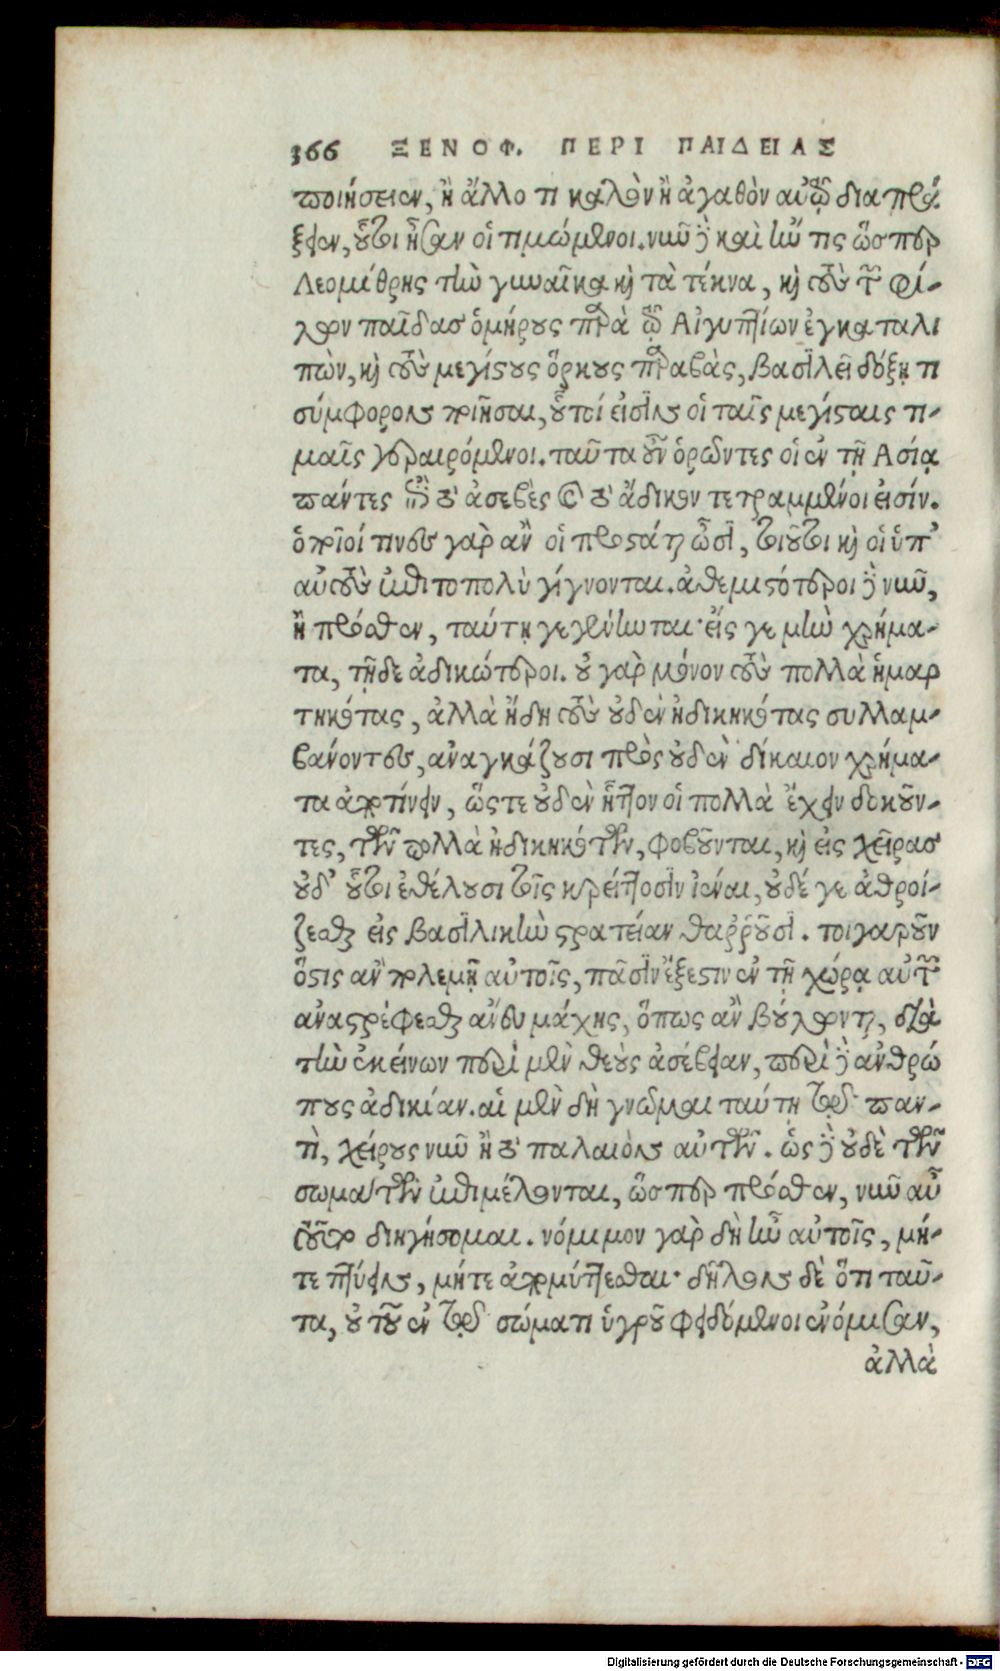 366 ΞΕΝΟΦ. ΠΕΡΙ ΠΑΙΔΕΙΑΣ
ποιήσειεν, ἢ ἄλλο τι καλὸν ἢ ἀγαθὸν αὐτῷ διαπρά
ξειεν, οὗτοι ἦσαν οἱ τιμώμενοι. νῦν δὲ καὶ ἤν τις ὥσπερ
Λεομίθρης τὴν γυναῖκα καὶ τὰ τέκνα, καὶ τοὺς τῶν φί-
λων παῖδας ὁμήρους παρὰ τῷ Αἰγυπτίων ἐγκαταλι
πὼν, καὶ τοὺς μεγίστους ὅρκους παραβὰς, βασιλεῖ δόξῃ τι
σύμφορον ποιῆσαι, οὗτοί εἰσιν οἱ ταῖς μεγίσταις τι-
μαῖς γεραιρόμενοι. ταῦτα οὖν ὁρῶντες οἱ ἐν τῇ Ἀσίᾳ
πάντες ἐπὶ τὸ ἀσεβὲς καὶ τὸ ἄδικον τετραμμένοι εἰσίν.
ὁποῖοί τινες γὰρ ἂν οἱ προστάται ὦσι, τοιοῦτοι καὶ οἱ ὑπ’
αὐτοὺς ἐπιτοπολὺ γίγνονται. ἀθεμιστότεροι δὲ νῦν,
ἢ πρόσθεν, ταύτῃ γεγένηνται· εἴς γε μὴν χρήμα-
τα, τῇδε ἀδικώτεροι. οὐ γὰρ μόνον τοὺς πολλὰ ἡμαρ
τηκότας, ἀλλὰ ἤδη τοὺς οὐδὲν ἠδικηκότας συλλαμ-
βάνοντες, ἀναγκάζουσι πρὸς οὐδὲν δίκαιον χρήμα-
τα ἀποτίνειν, ὥστε οὐδὲν ἧττον οἱ πολλὰ ἔχειν δοκοῦν-
τες, τῶν πολλὰ ἠδικηκότων, φοβοῦνται, καὶ εἰς χεῖρας
οὐδ’ οὗτοι ἐθέλουσι τοῖς κρείττοσιν ἰέναι, οὐδέ γε ἀθροί-
ζεσθαι εἰς βασιλικὴν στρατείαν θαῤῥοῦσι. τοιγαροῦν
ὅστις ἂν πολεμῇ αὐτοῖς, πᾶσιν ἔξεστιν ἐν τῇ χώρᾳ αὐτῶν
ἀναστρέφεσθαι ἄνευ μάχης, ὅπως ἂν βούλωνται, διὰ
τὴν ἐκείνων περὶ μὲν θεοὺς ἀσέβειαν, περὶ δὲ ἀνθρώ
πους ἀδικίαν. αἱ μὲν δὴ γνῶμαι ταύτῃ τῷ παν-
τὶ, χείρους νῦν ἢ τὸ παλαιὸν αὐτῶν. ὡς δὲ οὐδὲ τῶν
σωμάτων ἐπιμέλονται, ὥσπερ πρόσθεν, νῦν αὖ
τοῦτο διηγήσομαι. νόμιμον γὰρ δὴ ἦν αὐτοῖς, μή-
τε πτύειν, μήτε ἀπομύττεσθαι· δῆλον δὲ ὅτι ταῦ-
τα, οὐ τοῦ ἐν τῷ σώματι ὑγροῦ φειδόμενοι ἐνόμισαν,
ἀλλὰ
Digitalisierung gefördert durch die Deutsche Forschungsgemeinschaft - DFG